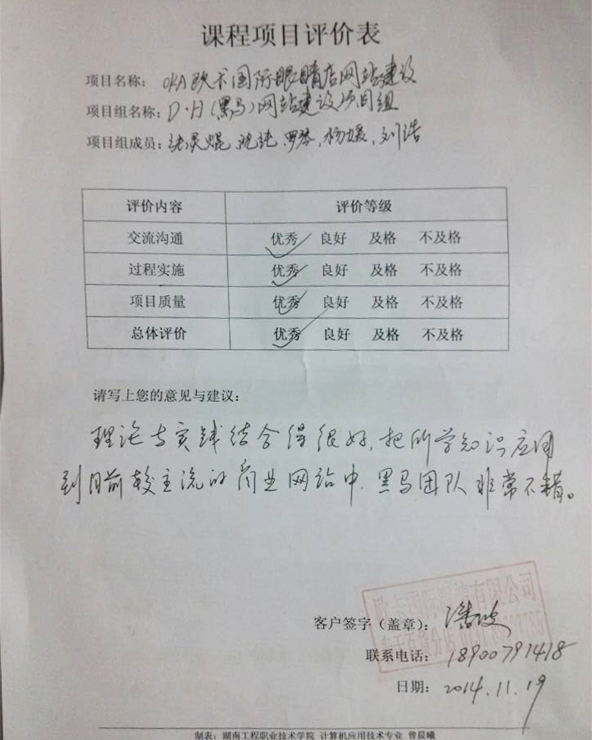 课程项目评价表
项目名称: OKA欧卡国际眼睛店网站建设
项目组名称: D·H(黑马)网站建设项目组
项目组成员: 罗 杨媛, 刘浩
评价内容 评价等级
交流沟通 优秀 良好 及格 不及格
过程实施 优秀 良好 及格 不及格
项目质量 优秀 良好 及格 不及格
总体评价 优秀 良好 及格 不及格
请写上您的意见与建议:
理论与实践结合得很好,把所学知识应用
到目前较主流的商业网站中.黑马团队非常不错。
欧卡国际 有限公司
客户签字(盖章): 潘波
联系电话: 18900791418
日期: 2014.11.19
制表: 湖南工程职业技术学院 计算机应用技术专业 曾晨曦